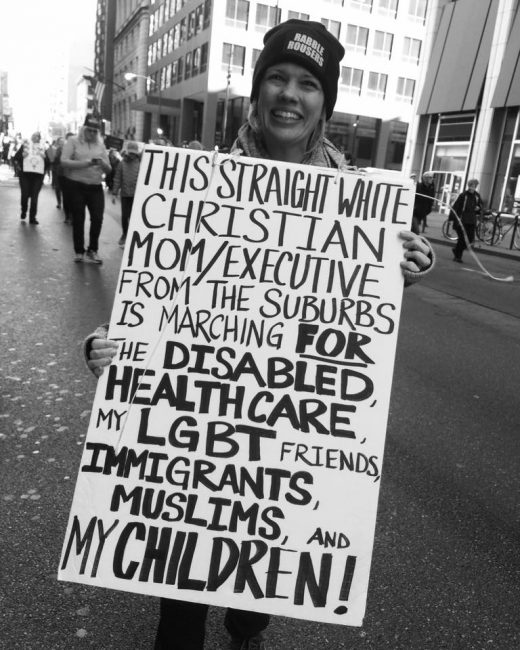 RABBLE
ROUSERS
THIS STRAIGHT WHITE
CHRISTIAN
MOM/EXECUTIVE
FROM THE SUBURBS
IS MARCHING FOR
THE DISABLED,
HEALTHCARE,
MY LGBT FRIENDS,
IMMIGRANTS,
MUSLIMS, AND
MY CHILDREN!